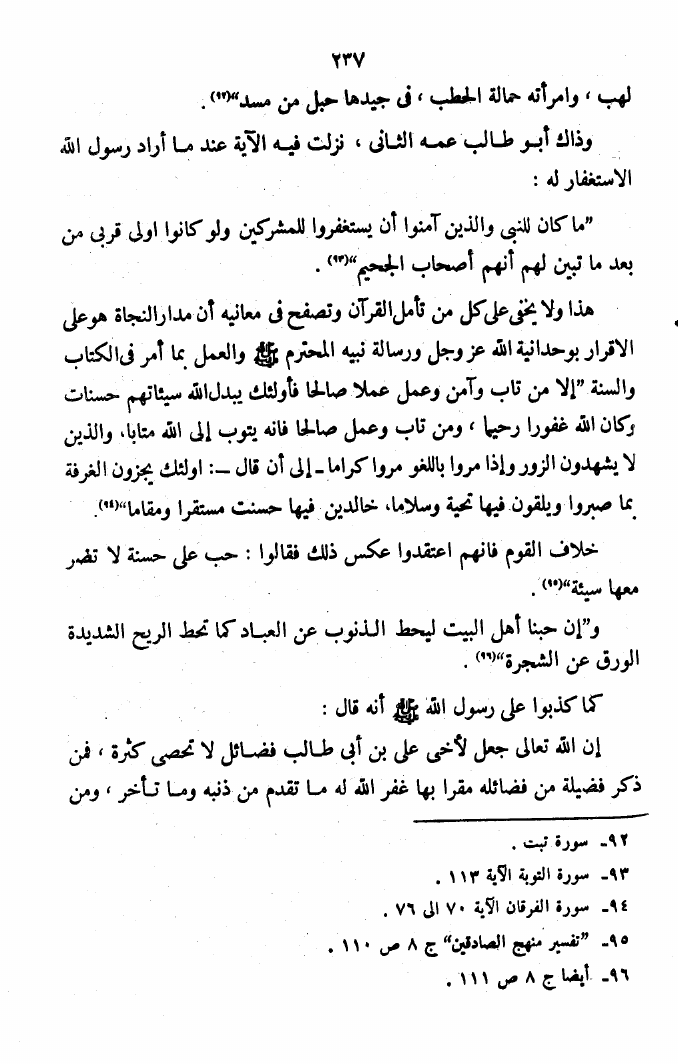 ٢٣٧
لهب ، وامرأته حمالة الحطب ، فى جيدها حبل من مسد“(٩٢) .
وذاك أبـو طـالب عمـه الثـانى ، نزلت فيـه الآية عند مـا أراد رسول الله
الاستغفار له :
”ما كان للنبى والذين آمنوا أن يستغفروا للمشركين ولو كانوا اولى قربى من
بعد ما تبين لهم أنهم أصحاب الجحيم“(٩٣) .
هذا ولا يخفى على كل من تأمل القرآن وتصفح فى معانيه أن مدار النجاة هو على
الاقرار بوحدانية الله عز وجل ورسالة نبيه المحترم ﷺ والعمل بما أمر فى الكتاب
والسنة ”إلا من تاب وآمن وعمل عملا صالحا فأولئك يبدل الله سيئاتهم حسنات
وكان الله غفورا رحيما ، ومن تاب وعمل صالحا فانه يتوب إلى الله متابا، والذين
لا يشهدون الزور وإذا مروا باللغو مروا كراما ـ إلى أن قال ـ: اولئك يجزون الغرفة
بما صبروا ويلقون فيها تحية وسلاما، خالدين فيها حسنت مستقرا ومقاما“(٩٤).
خلاف القوم فانهم اعتقدوا عكس ذلك فقالوا : حب على حسنة لا تضر
معها سيئة“(٩٥) .
و”إن حبنا أهل البيت ليحط الـذنوب عن العبـاد كما تحط الريح الشديدة
الورق عن الشجرة“(٩٦) .
كما كذبوا على رسول الله ﷺ أنه قال :
إن الله تعالى جعل لأخى على بن أبى طـالب فضـائل لا تحصى كثرة ، فمن
ذكر فضيلة من فضائله مقرا بها غفر الله له مـا تقدم من ذنبه ومـا تـأخر ، ومن
٩٢ـ سورة تبت .
٩٣ـ سورة التوبة الآية ١١٣ .
٩٤ـ سورة الفرقان الآية ٧٠ الى ٧٦ .
٩٥ـ ”تفسير منهج الصادقين“ ج ٨ ص ١١٠ .
٩٦ـ أيضا ج ٨ ص ١١١ .